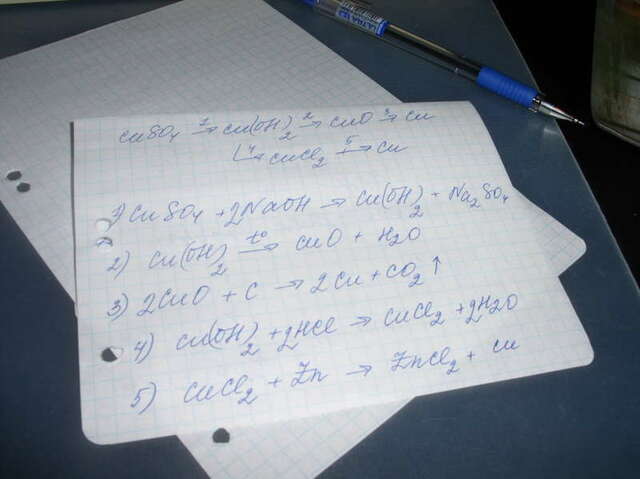 CuSO₄ →¹ Cu(OH)₂ →² CuO →³ Cu
↳⁴ CuCl₂ →⁵ Cu
1) CuSO₄ + 2NaOH → Cu(OH)₂ + Na₂SO₄
2) Cu(OH)₂ →t° CuO + H₂O
3) 2CuO + C → 2Cu + CO₂↑
4) Cu(OH)₂ + 2HCl → CuCl₂ + 2H₂O
5) CuCl₂ + Zn → ZnCl₂ + Cu